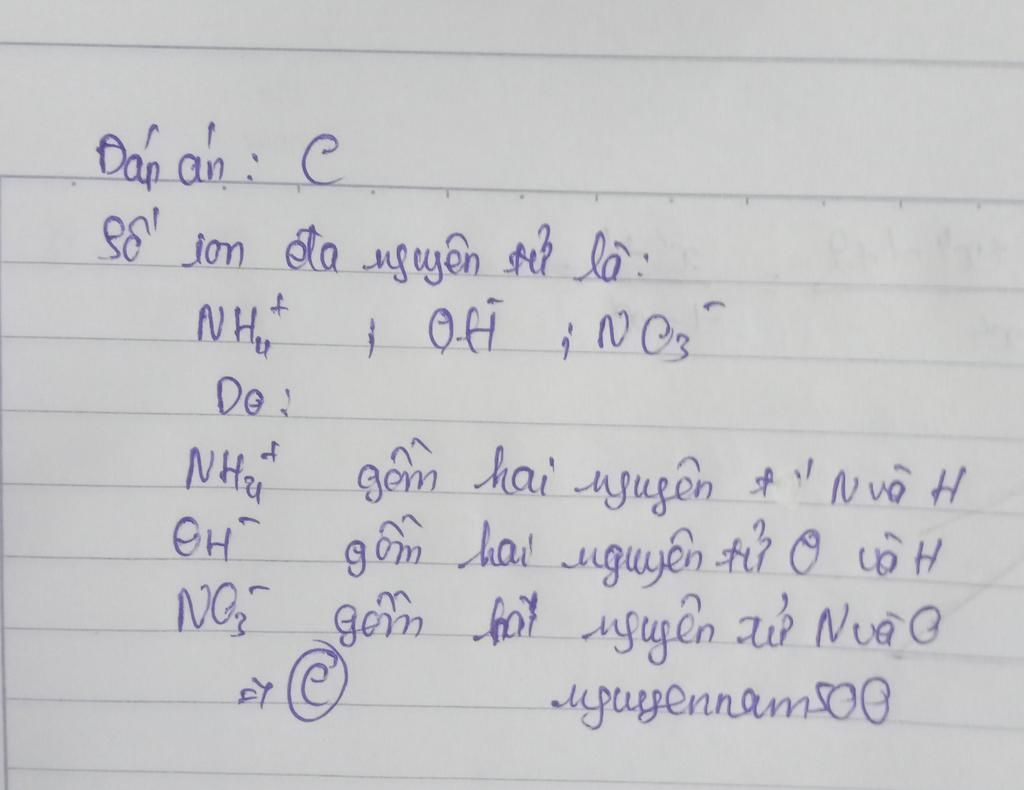 Đáp án: C
Số ion đa nguyên tử là:
NH₄⁺ ; OH⁻ ; NO₃⁻
Do:
NH₄⁺ gồm hai nguyên tử N và H
OH⁻ gồm hai nguyên tử O và H
NO₃⁻ gồm hai nguyên tử N và O
=> C nguyennam500